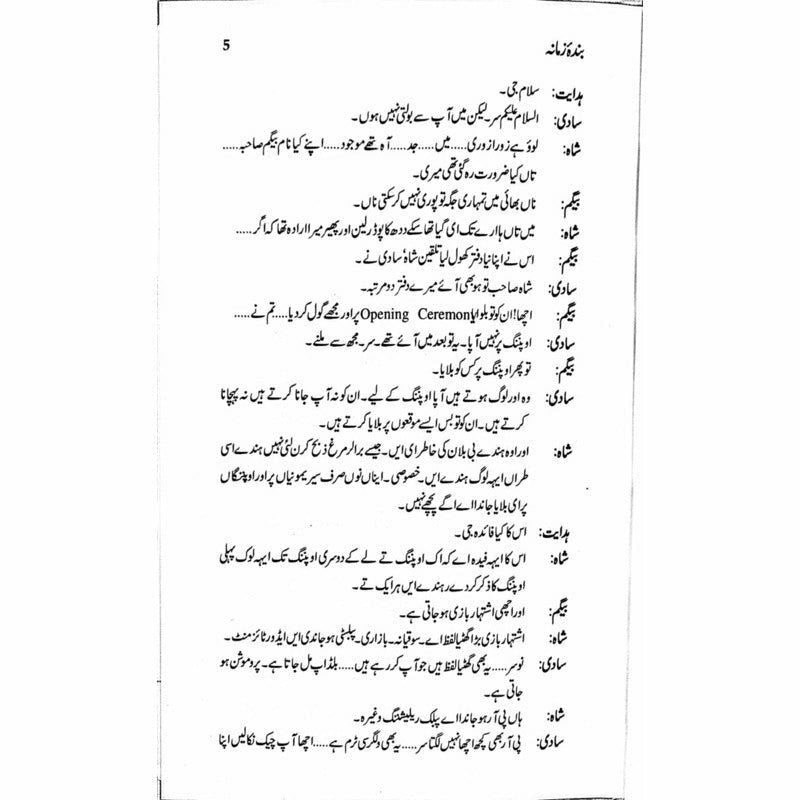 بندۂ زمانہ 5
ہدایت: سلام جی۔
سادی: السلام علیکم سر۔ لیکن میں آپ سے بولتی نہیں ہوں۔
شاہ: لوؤ ہے زورا زوری.....میں.....جد.....آہ تھے موجود.....اپنے کیا نام بیگم صاحبہ.....
تاں کیا ضرورت رہ گئی تھی میری۔
بیگم: ناں بھائی میں تمہاری جگہ تو پوری نہیں کر سکتی ناں۔
شاہ: میں تاں ہا ارے تک ای گیا تھا سکے ددھ کا پوڈر لین اور پھیر میرا ارادہ تھا کہ اگر.....
بیگم: اس نے اپنا نیا دفتر کھول لیا تلقین شاہ سادی نے۔
سادی: شاہ صاحب تو ہو بھی آئے میرے دفتر دو مرتبہ۔
بیگم: اچھا! ان کو تو بلوا لیا Opening Ceremony پر اور مجھے گول کر دیا.....تم نے.....
سادی: اوپننگ پر نہیں آپا۔ یہ تو بعد میں آئے تھے۔ سر۔ مجھ سے ملنے۔
بیگم: تو پھر اوپننگ پر کس کو بلایا۔
سادی: وہ اور لوگ ہوتے ہیں آپا اوپننگ کے لیے۔ ان کو نہ آپ جانا کرتے ہیں نہ پہچانا
کرتے ہیں۔ ان کو تو بس ایسے موقعوں پر بلایا کرتے ہیں۔
شاہ: اور اوہ ہندے ہی بلان کی خاطر ای ایں۔ جیسے برالر مرغ ذبح کرن لئی نہیں ہندے اسی
طراں ایہہ لوگ ہندے ایں۔ خصوصی۔ ایناں نوں صرف سیریمونیاں پر اور اوپننگاں
پر ای بلایا جاندا اے اگے پچھے نہیں۔
ہدایت: اس کا کیا فائدہ جی۔
شاہ: اس کا ایہہ فیدہ اے کہ اک اوپننگ تے لے کے دوسری اوپننگ تک ایہہ لوک پہلی
اوپننگ کا ذکر کردے رہندے ایں ہر ایک تے۔
بیگم: اور اچھی اشتہار بازی ہو جاتی ہے۔
شاہ: اشتہار بازی بڑا گھٹیا لفظ اے۔ سوقیانہ۔ بازاری۔ پبلسٹی ہو جاندی ایں ایڈورٹائزمنٹ۔
سادی: نو سر.....یہ بھی گھٹیا لفظ ہیں جو آپ کر رہے ہیں.....بلڈ اپ مل جاتا ہے۔ پروموشن ہو
جاتی ہے۔
شاہ: ہاں پی آر ہو جاندا اے پبلک ریلیشننگ وغیرہ۔
سادی: پی آر بھی کچھ اچھا نہیں لگتا سر.....یہ بھی ولگر سی ٹرم ہے.....اچھا آپ چیک نکالیں اپنا